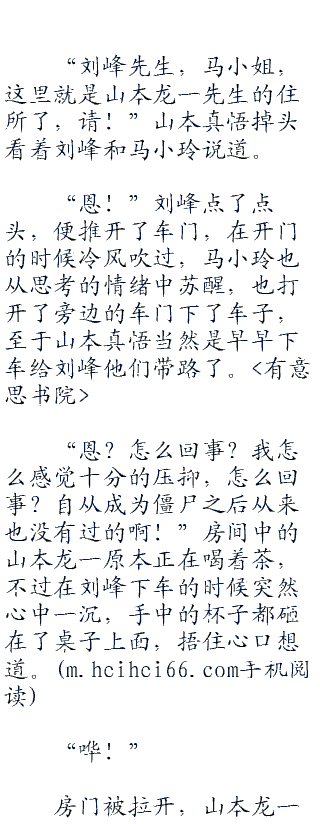 “刘峰先生，马小姐，
这里就是山本龙一先生的住
所了，请！”山本真悟掉头
看着刘峰和马小玲说道。
“恩！”刘峰点了点
头，便推开了车门，在开门
的时候冷风吹过，马小玲也
从思考的情绪中苏醒，也打
开了旁边的车门下了车子，
至于山本真悟当然是早早下
车给刘峰他们带路了。<有意
思书院>
“恩？怎么回事？我怎
么感觉十分的压抑，怎么回
事？自从成为僵尸之后从来
也没有过的啊！”房间中的
山本龙一原本正在喝着茶，
不过在刘峰下车的时候突然
心中一沉，手中的杯子都砸
在了桌子上面，捂住心口想
道。(m.hcihci66.com手机阅
读)
“哗！”
房门被拉开，山本龙一